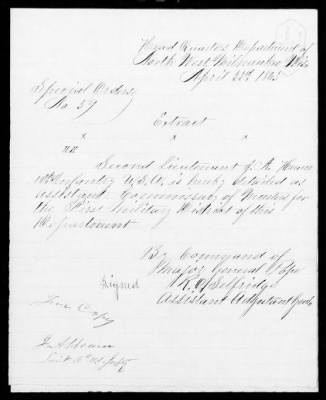 Head Quarters Department of
North West, Milwaukee Wis
April 22d 1863
Special Orders
No. 57
Extract
x x x
Second Lieutenant J. A. Hearn
10th Infantry U.S.A. is hereby detailed as
assistant Commissary of Musters for
the First Military District of this
Department
By Command of
Major General Pope
Signed R. O. Selfridge
Assistant Adjutant Genl.
True Copy
J A Hearn
Lieut